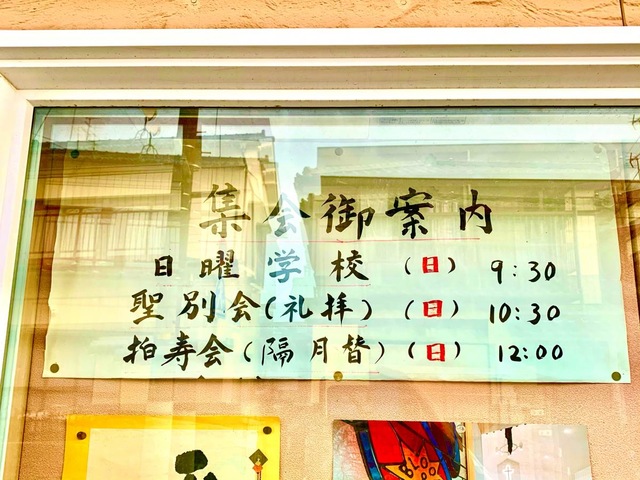 集会御案内
日曜学校 (日) 9:30
聖別会(礼拝) (日) 10:30
拍寿会(隔月替) (日) 12:00
BLOOD